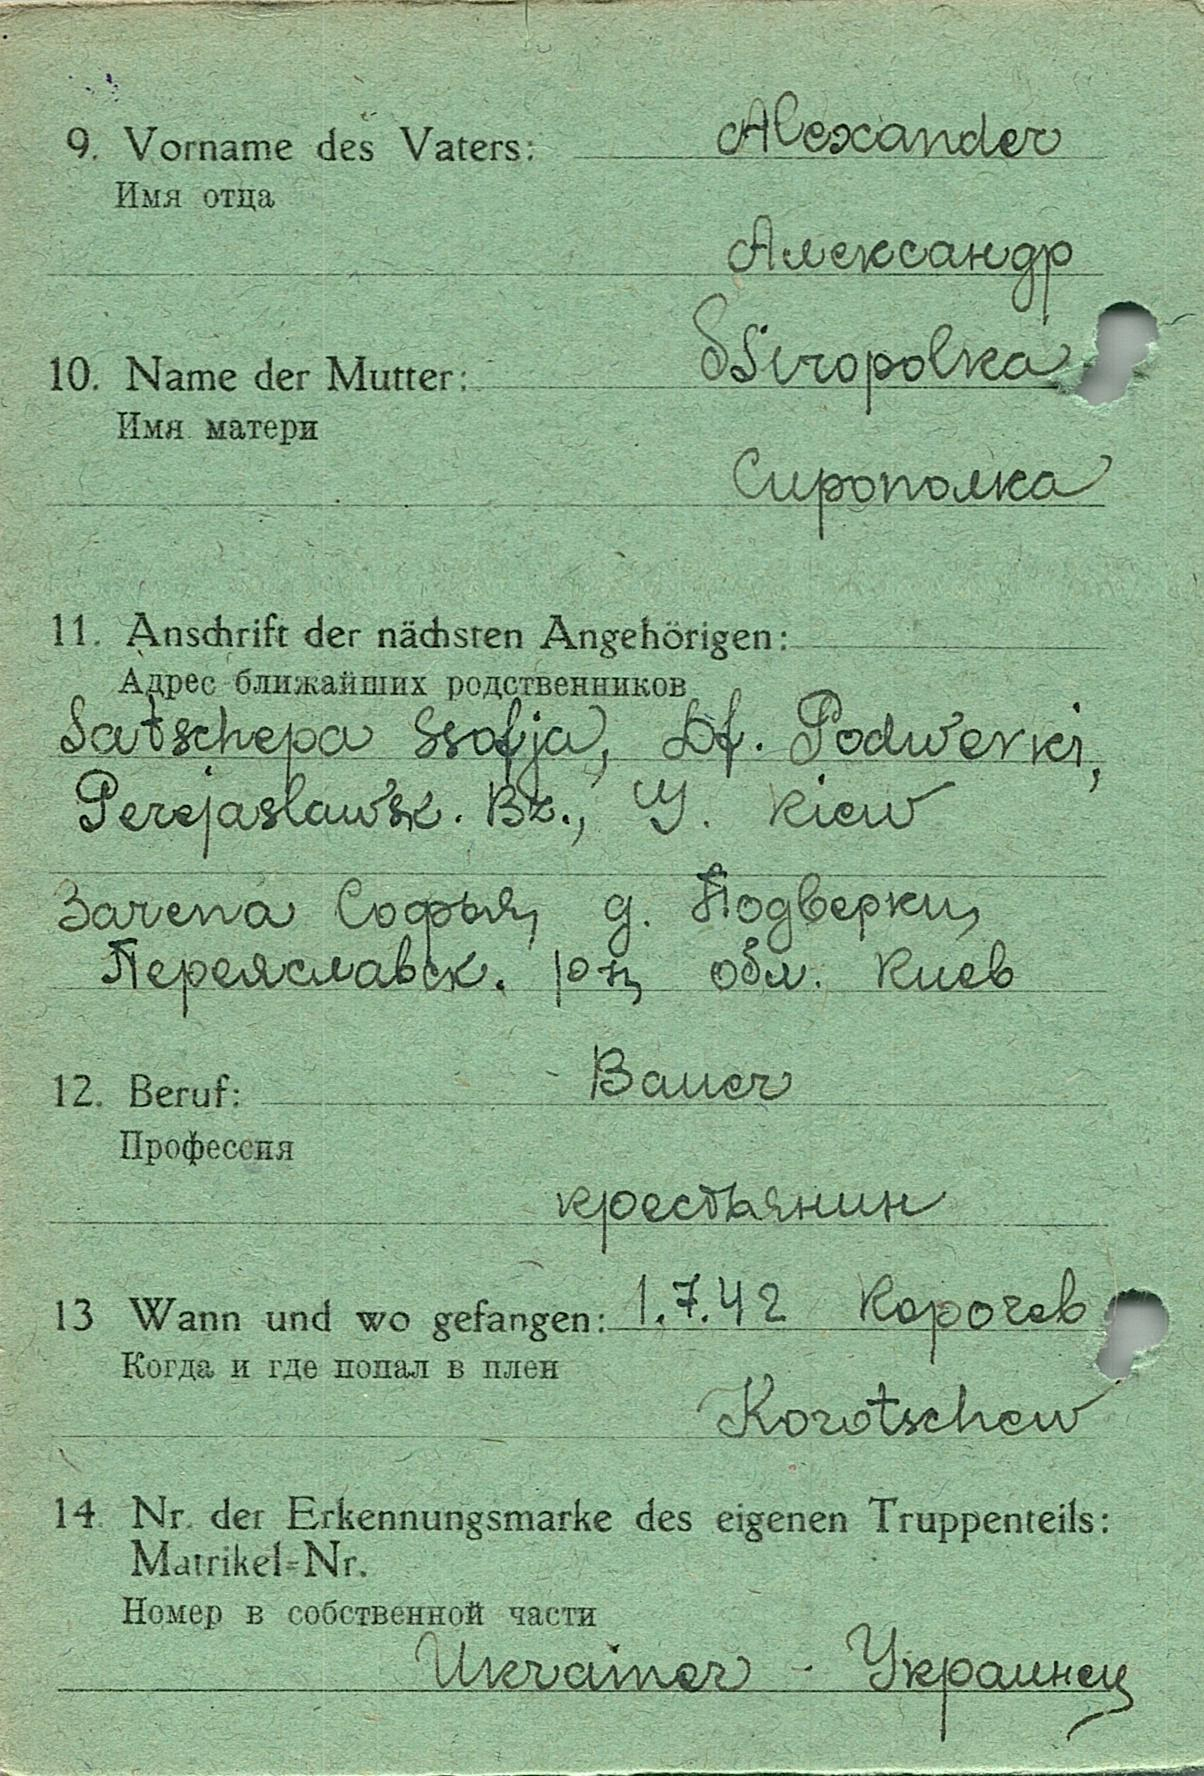 9. Vorname des Vaters: Alexander
Имя отца
Александр
10. Name der Mutter: Ssiropolka
Имя матери
Сирополка
11. Anschrift der nächsten Angehörigen:
Адрес ближайших родственников
Satschepa Ssofja, Df. Podwerki,
Perejaslawsk. Bz., G. Kiew
Зачепа Софья, д. Подверки,
Переяславск. р-н, обл. Киев
12. Beruf: Bauer
Профессия
крестьянин
13 Wann und wo gefangen: 1.7.42 Корочев
Когда и где попал в плен
Korotschew
14. Nr. der Erkennungsmarke des eigenen Truppenteils:
Matrikel-Nr.
Номер в собственной части
Ukrainer - Украинец